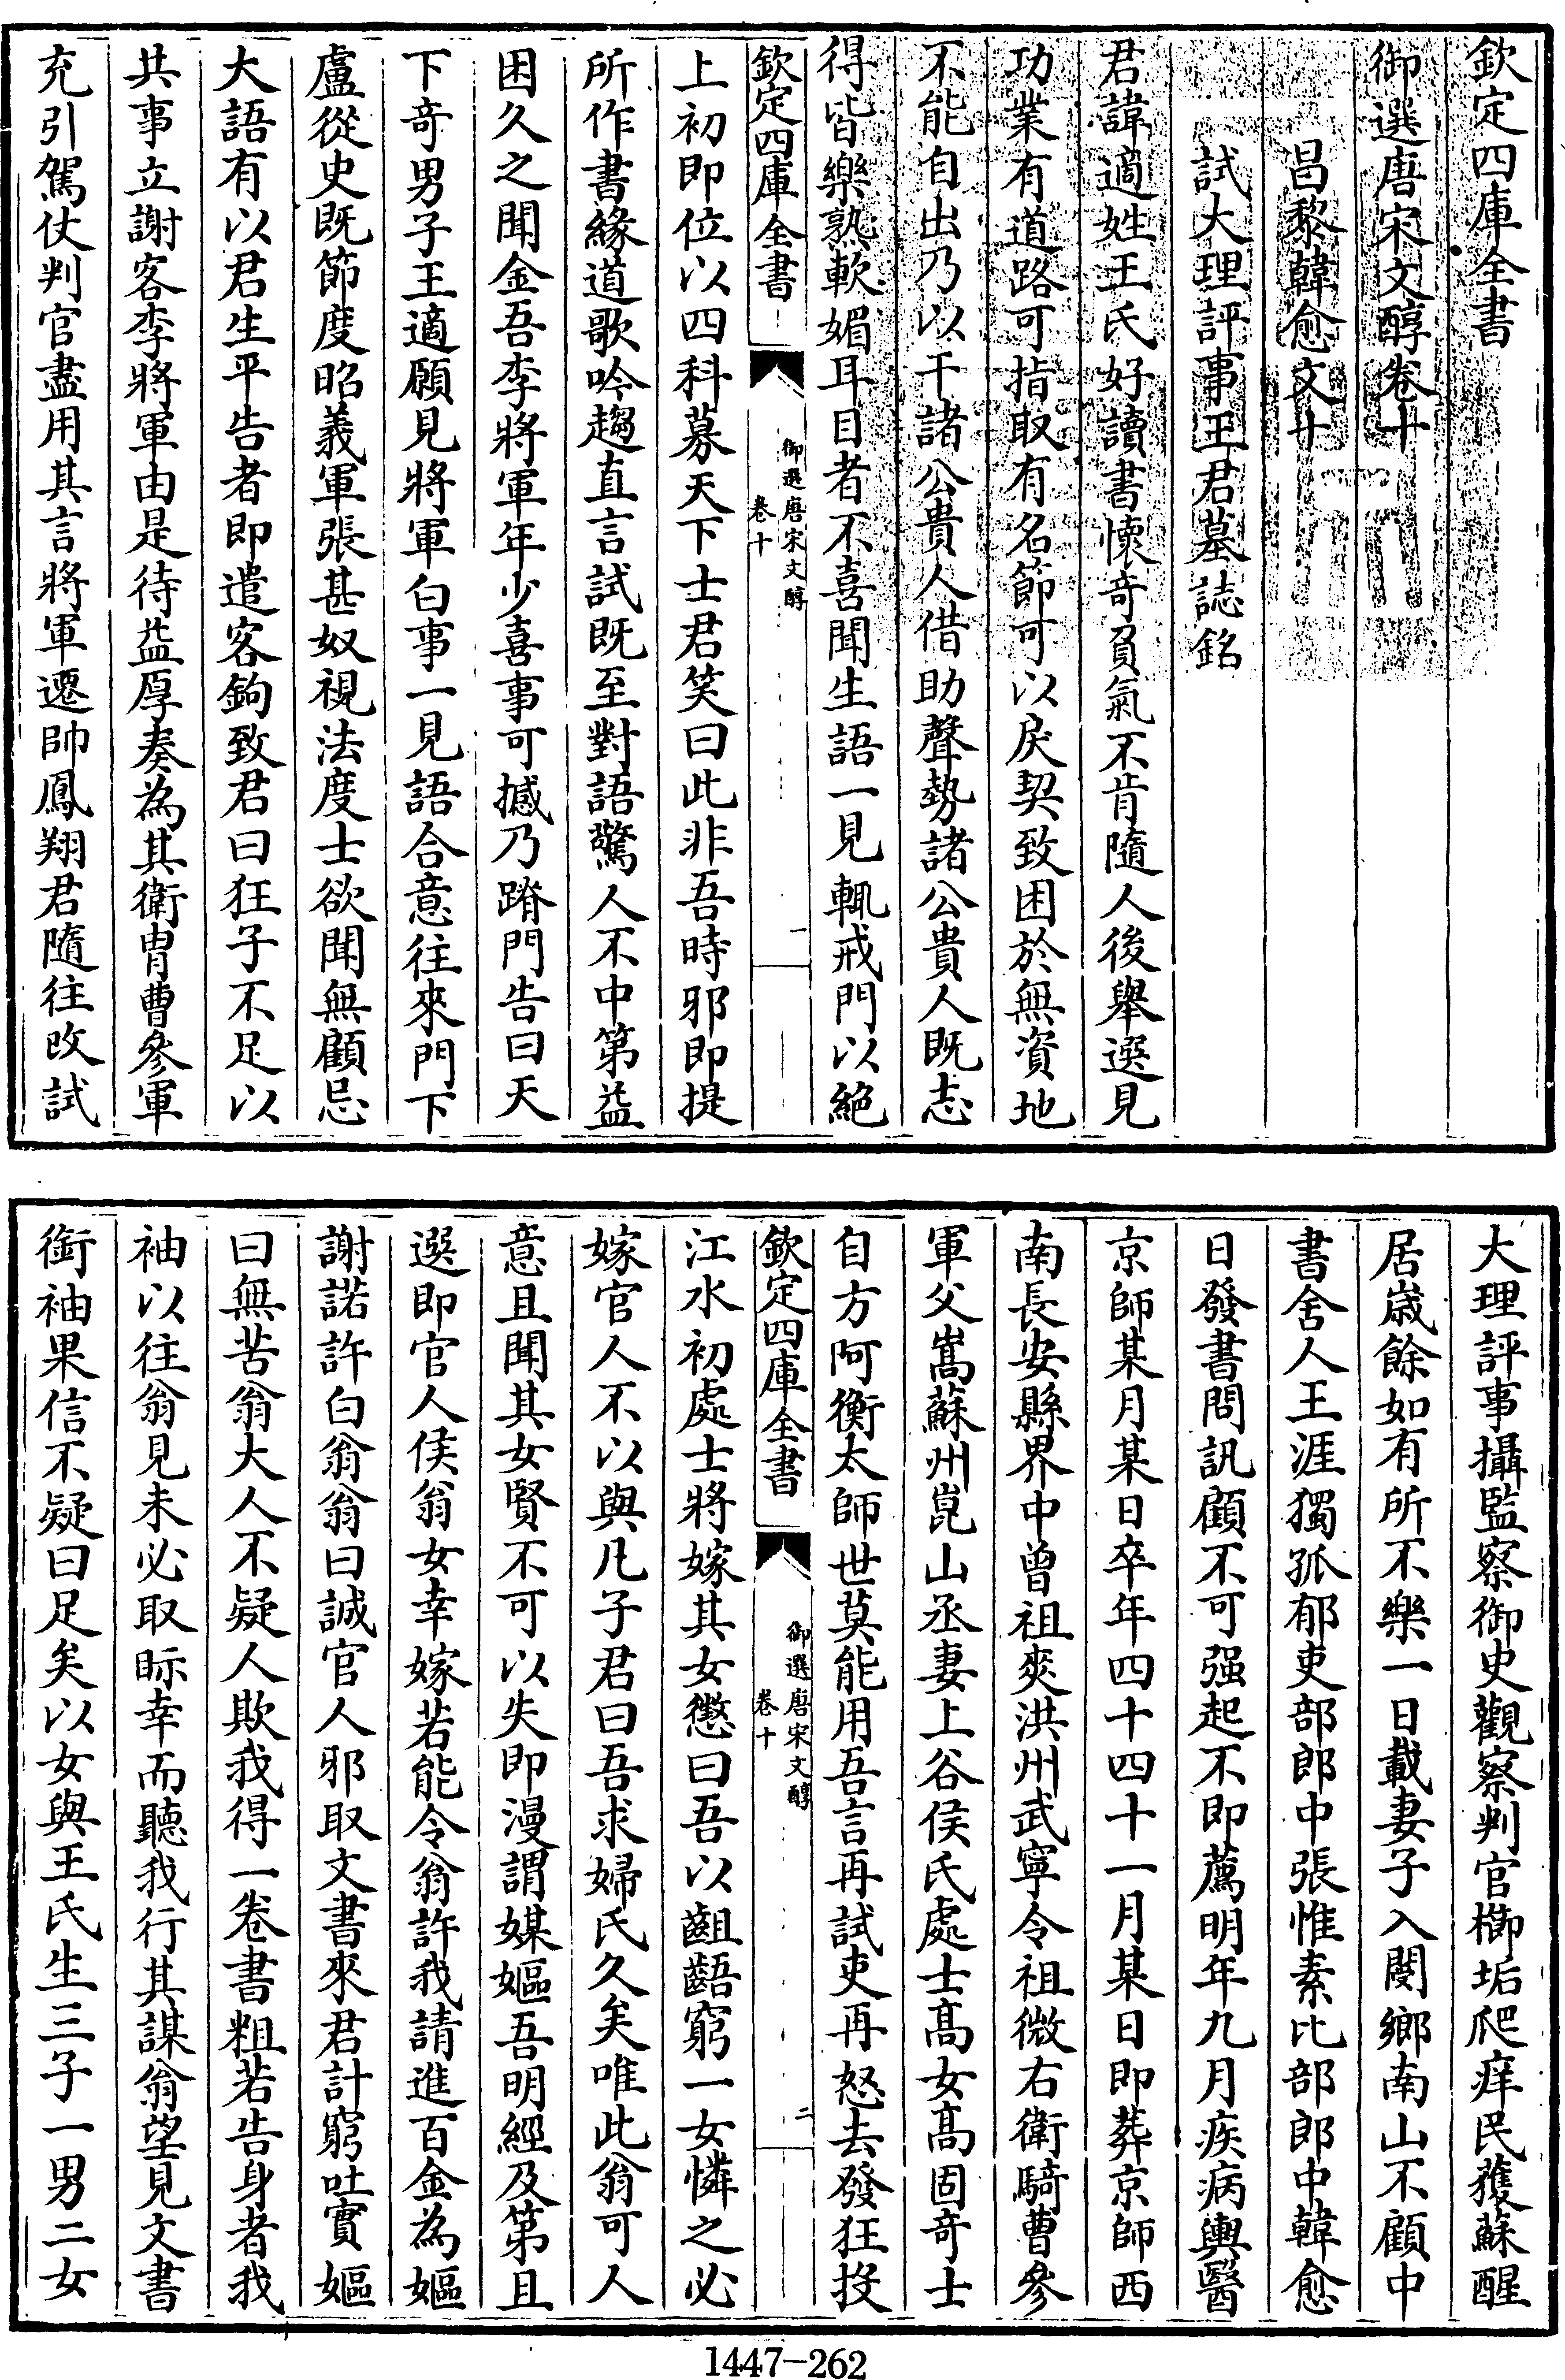 欽定四庫全書
御選唐宋文醇卷十
昌黎韓愈文十
試大理評事王君墓誌銘
君諱適姓王氏好讀書懷奇負氣不肯隨人後舉選見
功業有道路可指取有名節可以戾契致困於無資地
不能自出乃以干諸公貴人借助聲勢諸公貴人既志
得皆樂熟軟媚耳目者不喜聞生語一見輒戒門以絕
欽定四庫全書
御選唐宋文醇
卷十
一
上初即位以四科募天下士君笑曰此非吾時邪即提
所作書緣道歌吟趨直言試既至對語驚人不中第益
困久之聞金吾李將軍年少喜事可撼乃蹐門告曰天
下奇男子王適願見將軍白事一見語合意往來門下
盧從史既節度昭義軍張甚奴視法度士欲聞無顧忌
大語有以君生平告者即遣客鉤致君曰狂子不足以
共事立謝客李將軍由是待益厚奏為其衛胄曹參軍
充引駕仗判官盡用其言將軍遷帥鳳翔君隨往改試
大理評事攝監察御史觀察判官櫛垢爬痒民獲蘇醒
居歲餘如有所不樂一日載妻子入閿鄉南山不顧中
書舍人王涯獨孤郁吏部郎中張惟素比部郎中韓愈
日發書問訊顧不可强起不即薦明年九月疾病輿醫
京師某月某日卒年四十四十一月某日即葬京師西
南長安縣界中曾祖爽洪州武寧令祖微右衛騎曹參
軍父嵩蘇州崑山丞妻上谷侯氏處士高女高固奇士
自方阿衡太師世莫能用吾言再試吏再怒去發狂投
欽定四庫全書
御選唐宋文醇
卷十
二
江水初處士將嫁其女懲曰吾以齟齬窮一女憐之必
嫁官人不以與凡子君曰吾求婦氏久矣唯此翁可人
意且聞其女賢不可以失即漫謂媒嫗吾明經及第且
選即官人侯翁女幸嫁若能令翁許我請進百金為嫗
謝諾許白翁翁曰誠官人邪取文書來君計窮吐實嫗
曰無苦翁大人不疑人欺我得一卷書粗若告身者我
袖以往翁見未必取眎幸而聽我行其謀翁望見文書
銜袖果信不疑曰足矣以女與王氏生三子一男二女
1447-262